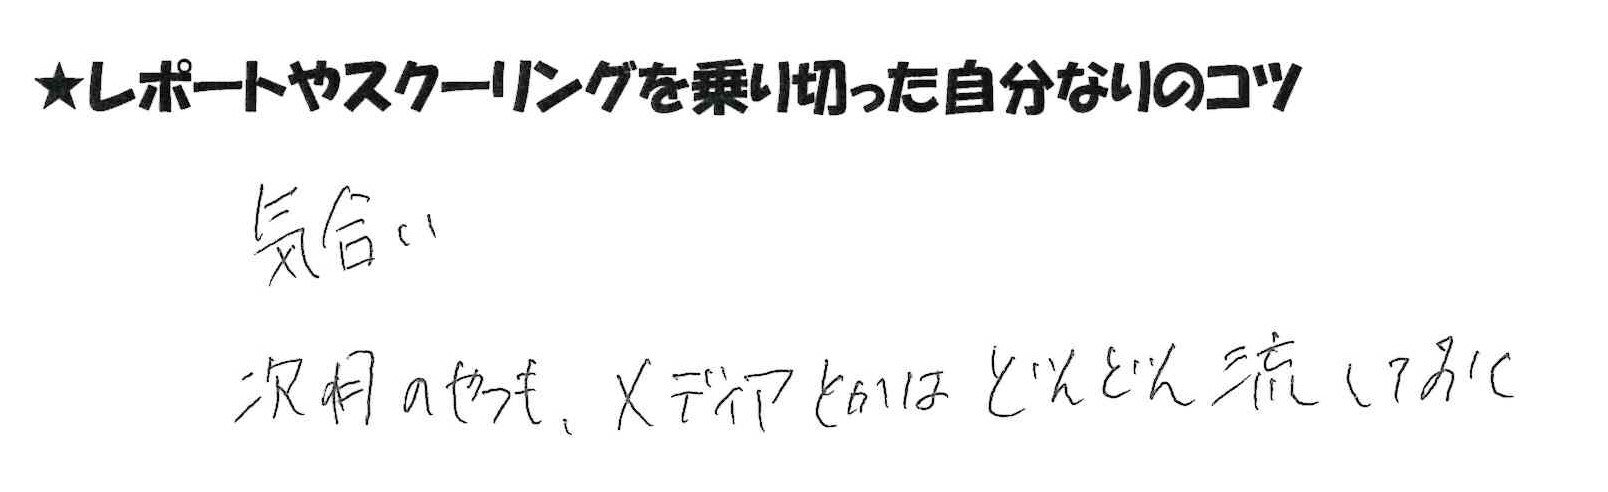 ★レポートやスクーリングを乗り切った自分なりのコツ
気合い
次月のやつも、メディアとかはどんどん流しておく